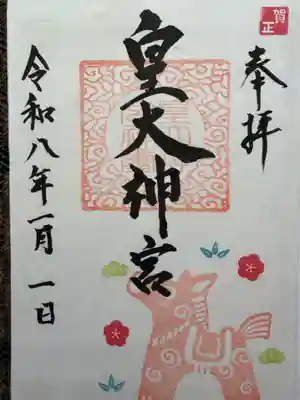 賀正
奉拝
皇大神宮
令和八年一月一日